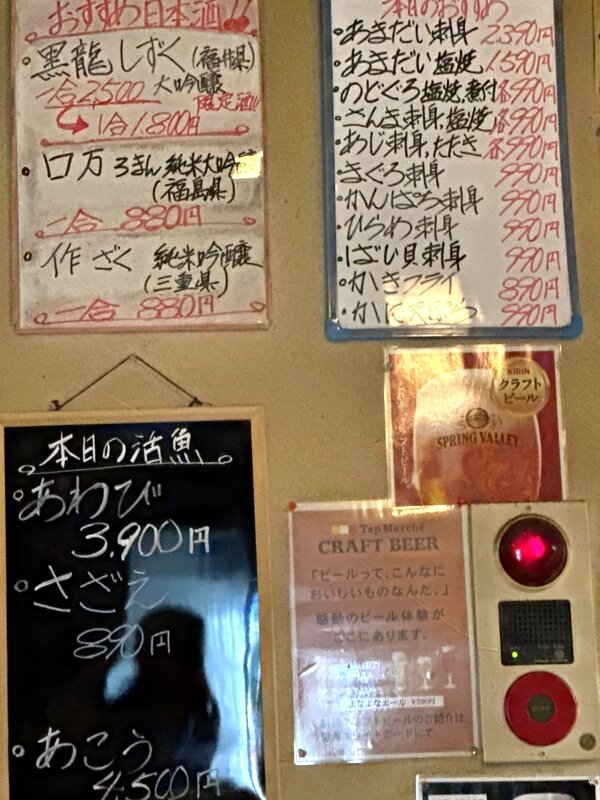 おすすめ日本酒!!
・黒龍 しずく(福井県)
一合2,500 大吟醸
限定酒!!
1合1,800円
・口万 ろまん 純米大吟醸
(福島県)
一合 880円
・作 ざく 純米吟醸
(三重県)
一合 880円
本日のおすすめ
・あきだい刺身 2,390円
・あきだい塩焼 1,590円
・のどぐろ塩焼,煮付 各990円
・さんき刺身,塩焼 各990円
・あじ刺身,たたき 各990円
・まぐろ刺身 990円
・かんぱち刺身 990円
・ひらめ刺身 990円
・ばい貝刺身 990円
・かきフライ 890円
・かに天ぷら 990円
本日の活魚
・あわび
3,900円
・さざえ
890円
・あこう
4,500円
KIRIN
クラフト
ビール
SPRING VALLEY
Tap Marché
CRAFT BEER
「ビールって、こんなに
おいしいものなんだ。」
感動のビール体験が
ここにあります。
よなよなエール